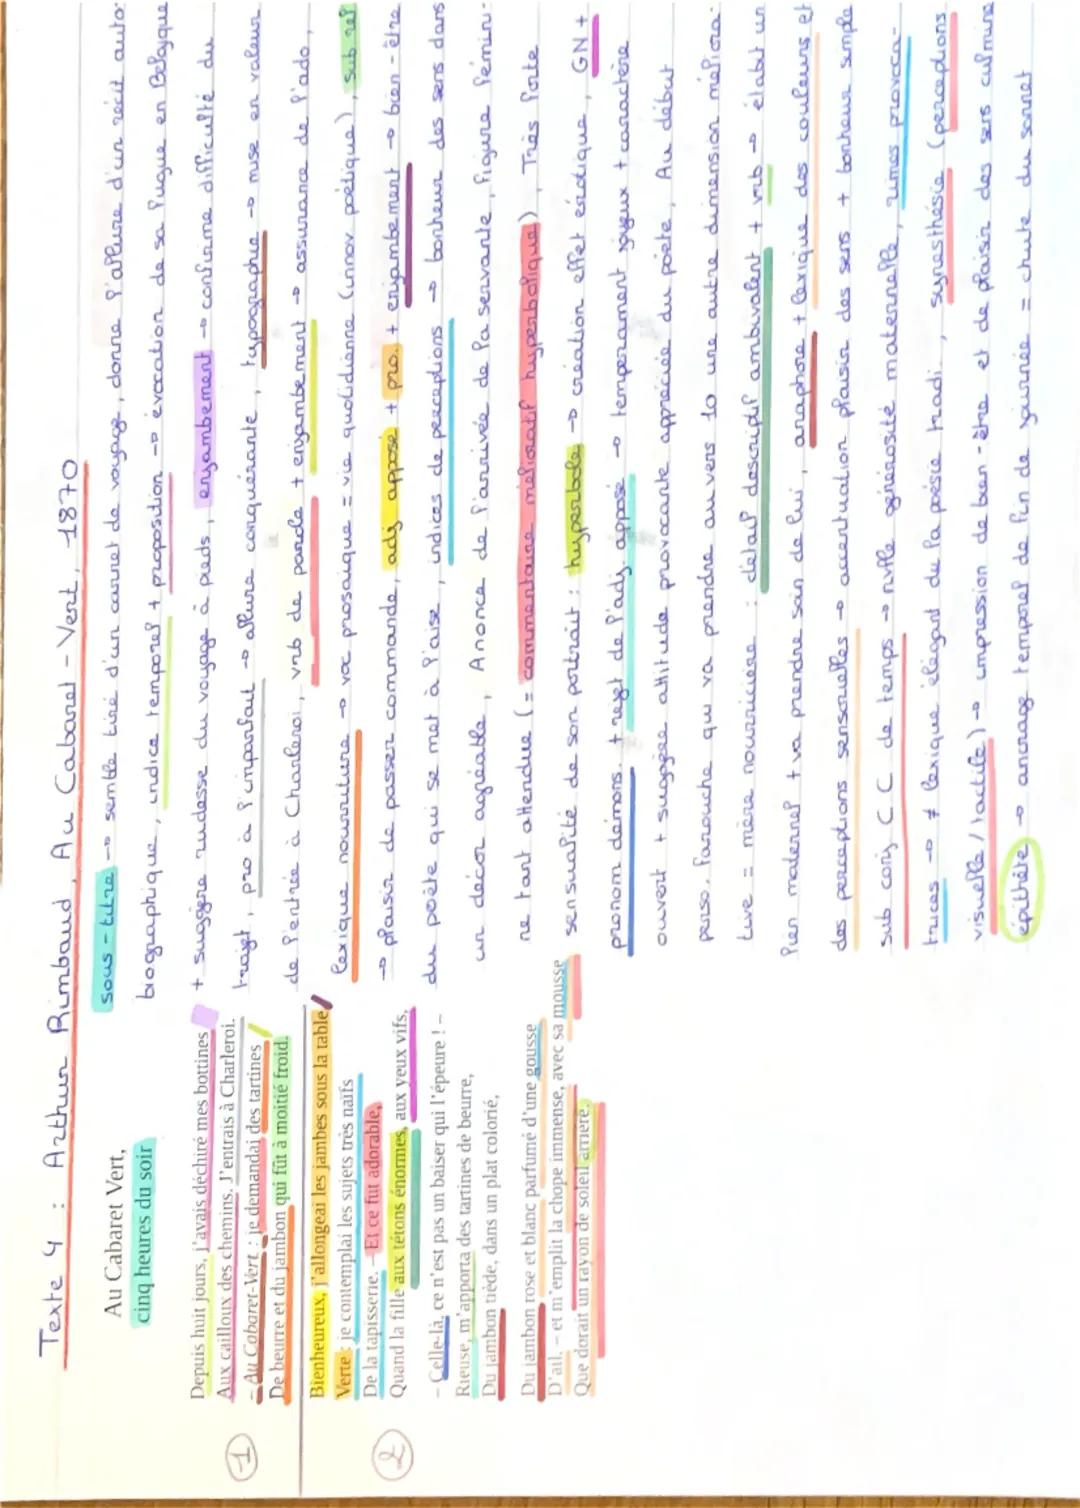 Texte 4 : Arthur Rimbaud, Au Cabaret-Vert, 1870
Au Cabaret Vert,
cinq heures du soir
Depuis huit jours, j'avais déchiré mes bottines
Aux cailloux des chemins. J'entrais à Charleroi.
- Au Cabaret-Vert : je demandai des tartines
De beurre et du jambon qui fût à moitié froid.
Bienheureux, j'allongeai les jambes sous la table
Verte : je contemplai les sujets très naïfs
De la tapisserie. - Et ce fut adorable,
Quand la fille aux tétons énormes, aux yeux vifs,
- Celle-là, ce n'est pas un baiser qui l'épeure ! -
Rieuse, m'apporta des tartines de beurre,
Du jambon tiède, dans un plat colorié,
Du jambon rose et blanc parfumé d'une gousse
D'ail, - et m'emplit la chope immense, avec sa mousse
Que dorait un rayon de soleil arriéré.
1
2
sous-titre → semble tiré d'un carnet de voyage, donne l'allure d'un récit auto-
biographique, indice temporel + proposition → évocation de sa fugue en Belgique
+ suggère rudesse du voyage à pieds, enjambement → confirme difficulté du
trajet, pro à l'imparfait → allure conquérante, typographie → mise en valeur
de l'entrée à Charleroi, vrb de parole + enjambement → assurance de l'ado,
lexique nourriture → voc prosaïque = vie quotidienne (innov poétique), sub rel
→ plaisir de passer commande, adj apposé + pro. + enjambement → bien-être
du poète qui se met à l'aise, indices de perceptions → bonheur des sens dans
un décor agréable, Anonce de l'arrivée de la servante, figure fémini-
ne tant attendue (= commentaire mélioratif hyperbolique), Très forte
sensualité de son portrait : hyperbole → création effet érotique, GN +
pronom démons. + rejet de l'adj. apposé → temperament joyeux + caractère
ouvert + suggère attitude provocante appréciée du poète, Au début
perso. farouche qui va prendre au vers 10 une autre dimension méliora-
tive = mère nourricière : détail descriptif ambivalent + vrb → établit un
lien maternel + va prendre soin de lui, anaphore + lexique des couleurs et
des perceptions sensorielles → accentuation plaisir des sens + bonheur simple
sub conj C C de temps → générosité maternelle, rimes provoca-
trices → ≠ lexique élégant de la poésie tradi, synesthésie (perceptions
visuelle / tactile) → impression de bien-être et de plaisir des sens culmine
épithète → ancrage temporel de fin de journée = chute du sonnet